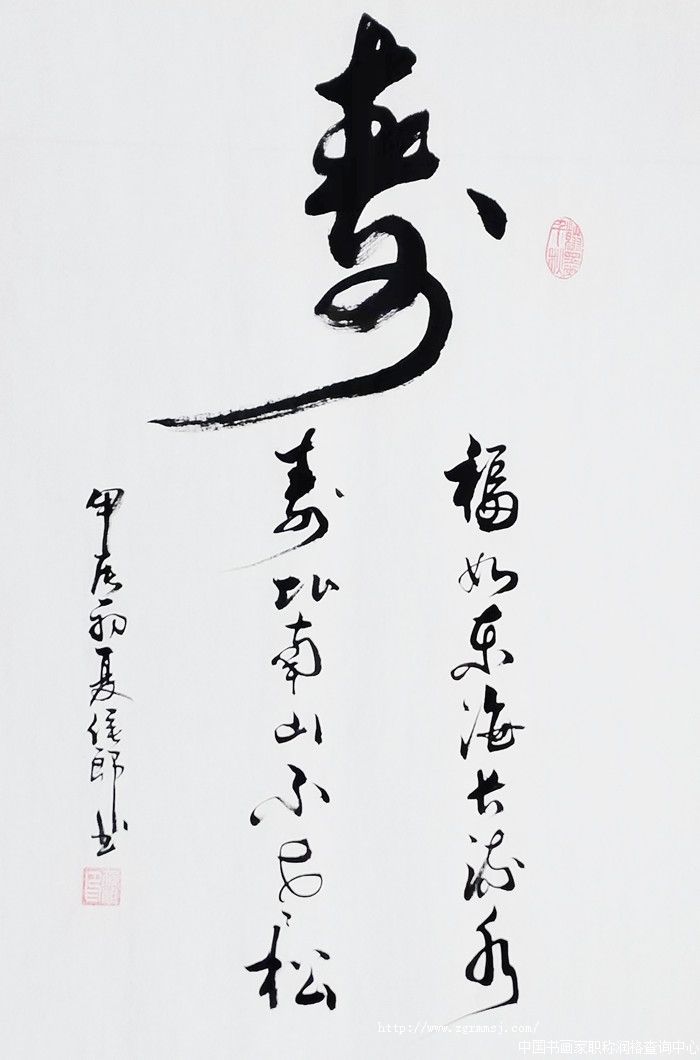 寿
福如东海长流水
寿比南山不老松
甲辰初夏郎书
http://www.zgrmmsj.com/
中国书画家职称润格查询中心